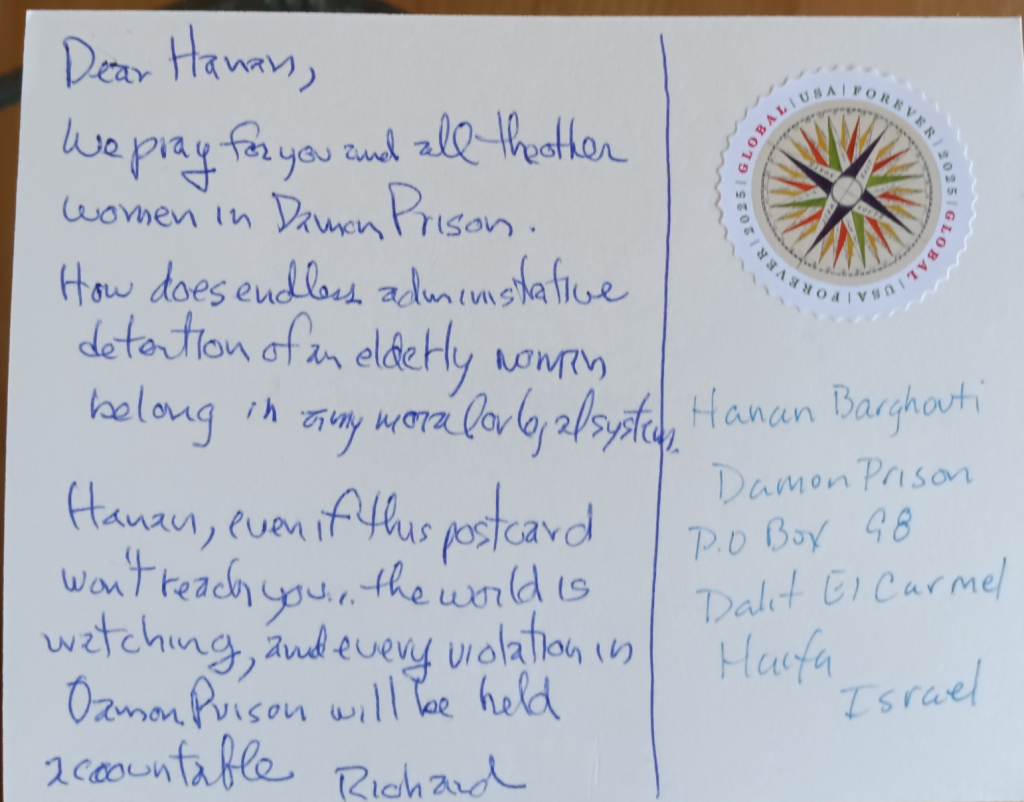 Dear Hanan,
We pray for you and all the other
women in Damon Prison.
How does endless administative
detention of an elderly woman
belong in any moral or legal system.
Hanan, even if this postcard
won't reach you... the world is
watching, and every violation in
Damon Prison will be held
accountable Richard
GLOBAL | USA | FOREVER | 2025 | GLOBAL | USA | FOREVER | 2025 |
Hanan Barghouti
Damon Prison
P.O Box 98
Dalit El Carmel
Haifa
Israel